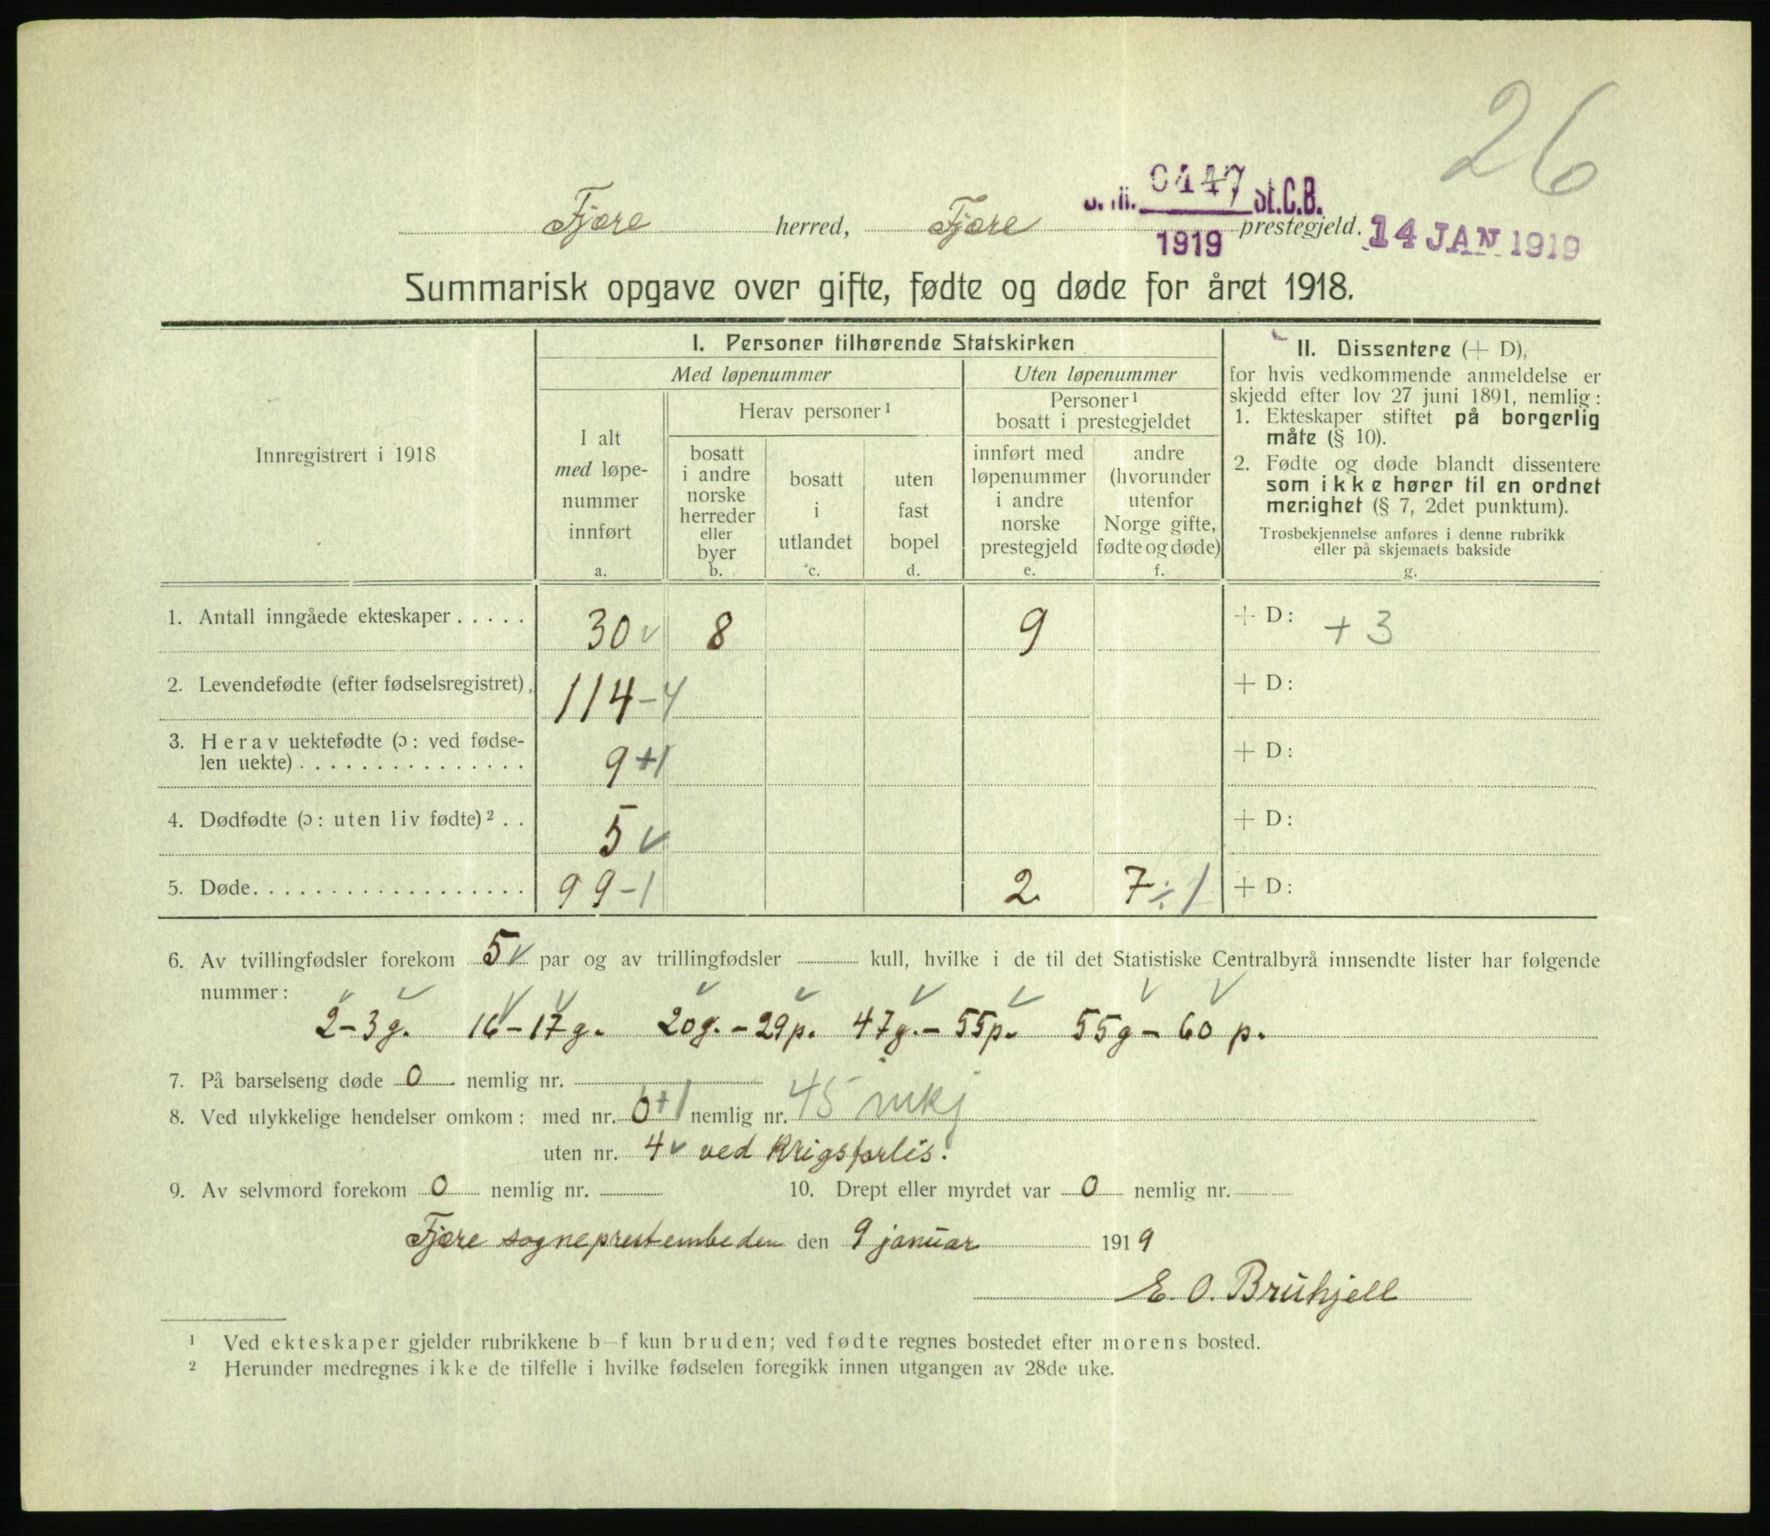 26
J. Nr. 0447 St.C.B.
1919
14 JAN 1919
Fjære herred, Fjære prestegjeld.
Summarisk opgave over gifte, fødte og døde for året 1918.
Innregistrert i 1918
I. Personer tilhørende Statskirken
Med løpenummer
Uten løpenummer
I alt
med løpe-
nummer
innført
a.
Herav personer¹
bosatt
i andre
norske
herreder
eller
byer
b.
bosatt
i
utlandet
c.
uten
fast
bopel
d.
Personer¹
bosatt i prestegjeldet
innført med
løpenummer
i andre
norske
prestegjeld
e.
andre
(hvorunder
utenfor
Norge gifte,
fødte og døde)
f.
II. Dissentere (+ D),
for hvis vedkommende anmeldelse er
skjedd efter lov 27 juni 1891, nemlig:
1. Ekteskaper stiftet på borgerlig
måte (§ 10).
2. Fødte og døde blandt dissentere
som ikke hører til en ordnet
menighet (§ 7, 2det punktum).
Trosbekjennelse anføres i denne rubrikk
eller på skjemaets bakside
g.
1. Antall inngåede ekteskaper . . . . . 30 ✓ 8 9 + D: + 3
2. Levendefødte (efter fødselsregistret) . 114 - 4 + D:
3. Herav uektefødte (ɔ: ved fødse-
len uekte) . . . . . . . . . . . . . . . 9 +1 + D:
4. Dødfødte (ɔ: uten liv fødte)² . . 5 ✓ + D:
5. Døde. . . . . . . . . . . . . . . . . . 99 -1 2 7 ÷ 1 + D:
6. Av tvillingfødsler forekom 5 ✓ par og av trillingfødsler kull, hvilke i de til det Statistiske Centralbyrå innsendte lister har følgende
nummer:
2-3g. 16-17g. 20g.-29p. 47g.-55p. 55g-60 p.
7. På barselseng døde 0 nemlig nr.
8. Ved ulykkelige hendelser omkom: med nr. 0 +1 nemlig nr. 45 mkj
uten nr. 4 ✓ ved Krigsforlis.
9. Av selvmord forekom 0 nemlig nr. 10. Drept eller myrdet var 0 nemlig nr.
Fjære sogneprestembeden den 9 januar 1919
E. O. Bruhjell
¹ Ved ekteskaper gjelder rubrikkene b–f kun bruden; ved fødte regnes bostedet efter morens bosted.
² Herunder medregnes ikke de tilfelle i hvilke fødselen foregikk innen utgangen av 28de uke.